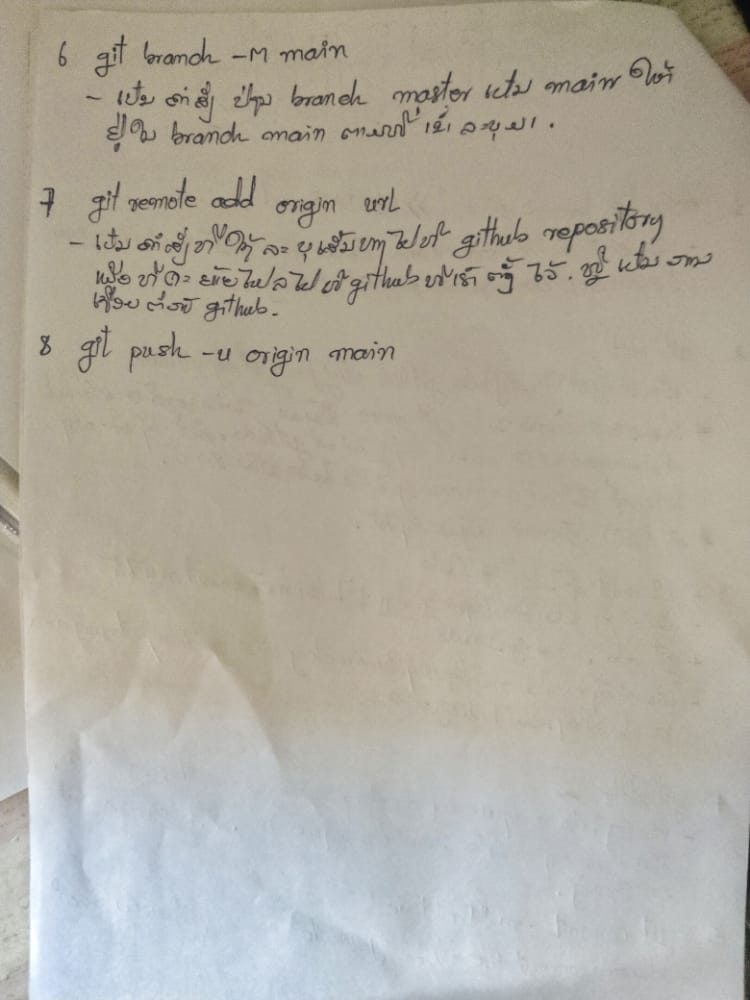 6 git branch -M main
- ເປັນ ຄຳສັ່ງ ປ່ຽນ branch master ເປັນ main ໃຫ້
ຢູ່ໃນ branch main ຕາມທີ່ ເຮົາ ລະບຸມາ.
7 git remote add origin url
- ເປັນ ຄຳສັ່ງ ທີ່ໃຊ້ ລະບຸເສັ້ນທາງ ໄປຫາ github repository
ເພື່ອ ທີ່ຈະ ຍ້າຍໄຟລໄປຫາ github ທີ່ເຮົາ ຕັ້ງ ໄວ້. ຫຼື ເປັນ ການ
ເຊື່ອມຕໍ່ຫາ github.
8 git push -u origin main